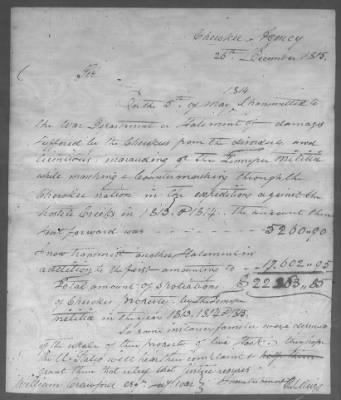 Cherokee Agency
26th December 1815.
Sir
On the 5th of May 1814 I transmitted to
the War Department a Statement of damage
suffered by the Cherokees from the disorders and
licentious marauding of the Tennessee Militia
while marching & Countermarching through the
Cherokee nation in the expeditions against the
hostile Creeks in 1813 & 1814. The amount then
sent forward was 5260=90
I now transmit another Statement in
addition to the first amounting to 17.602=95
Total amount of spoliations $ 22.863=85
of Cherokee property by the Tennessee
militia in the years 1813. 1814 & 15.
In some instances families were deprived
of the whole of their property of live stock. They hope
the U. States will hear their complaints &
grant them that relief that justice requires
William Crawford esqr. Secy of War